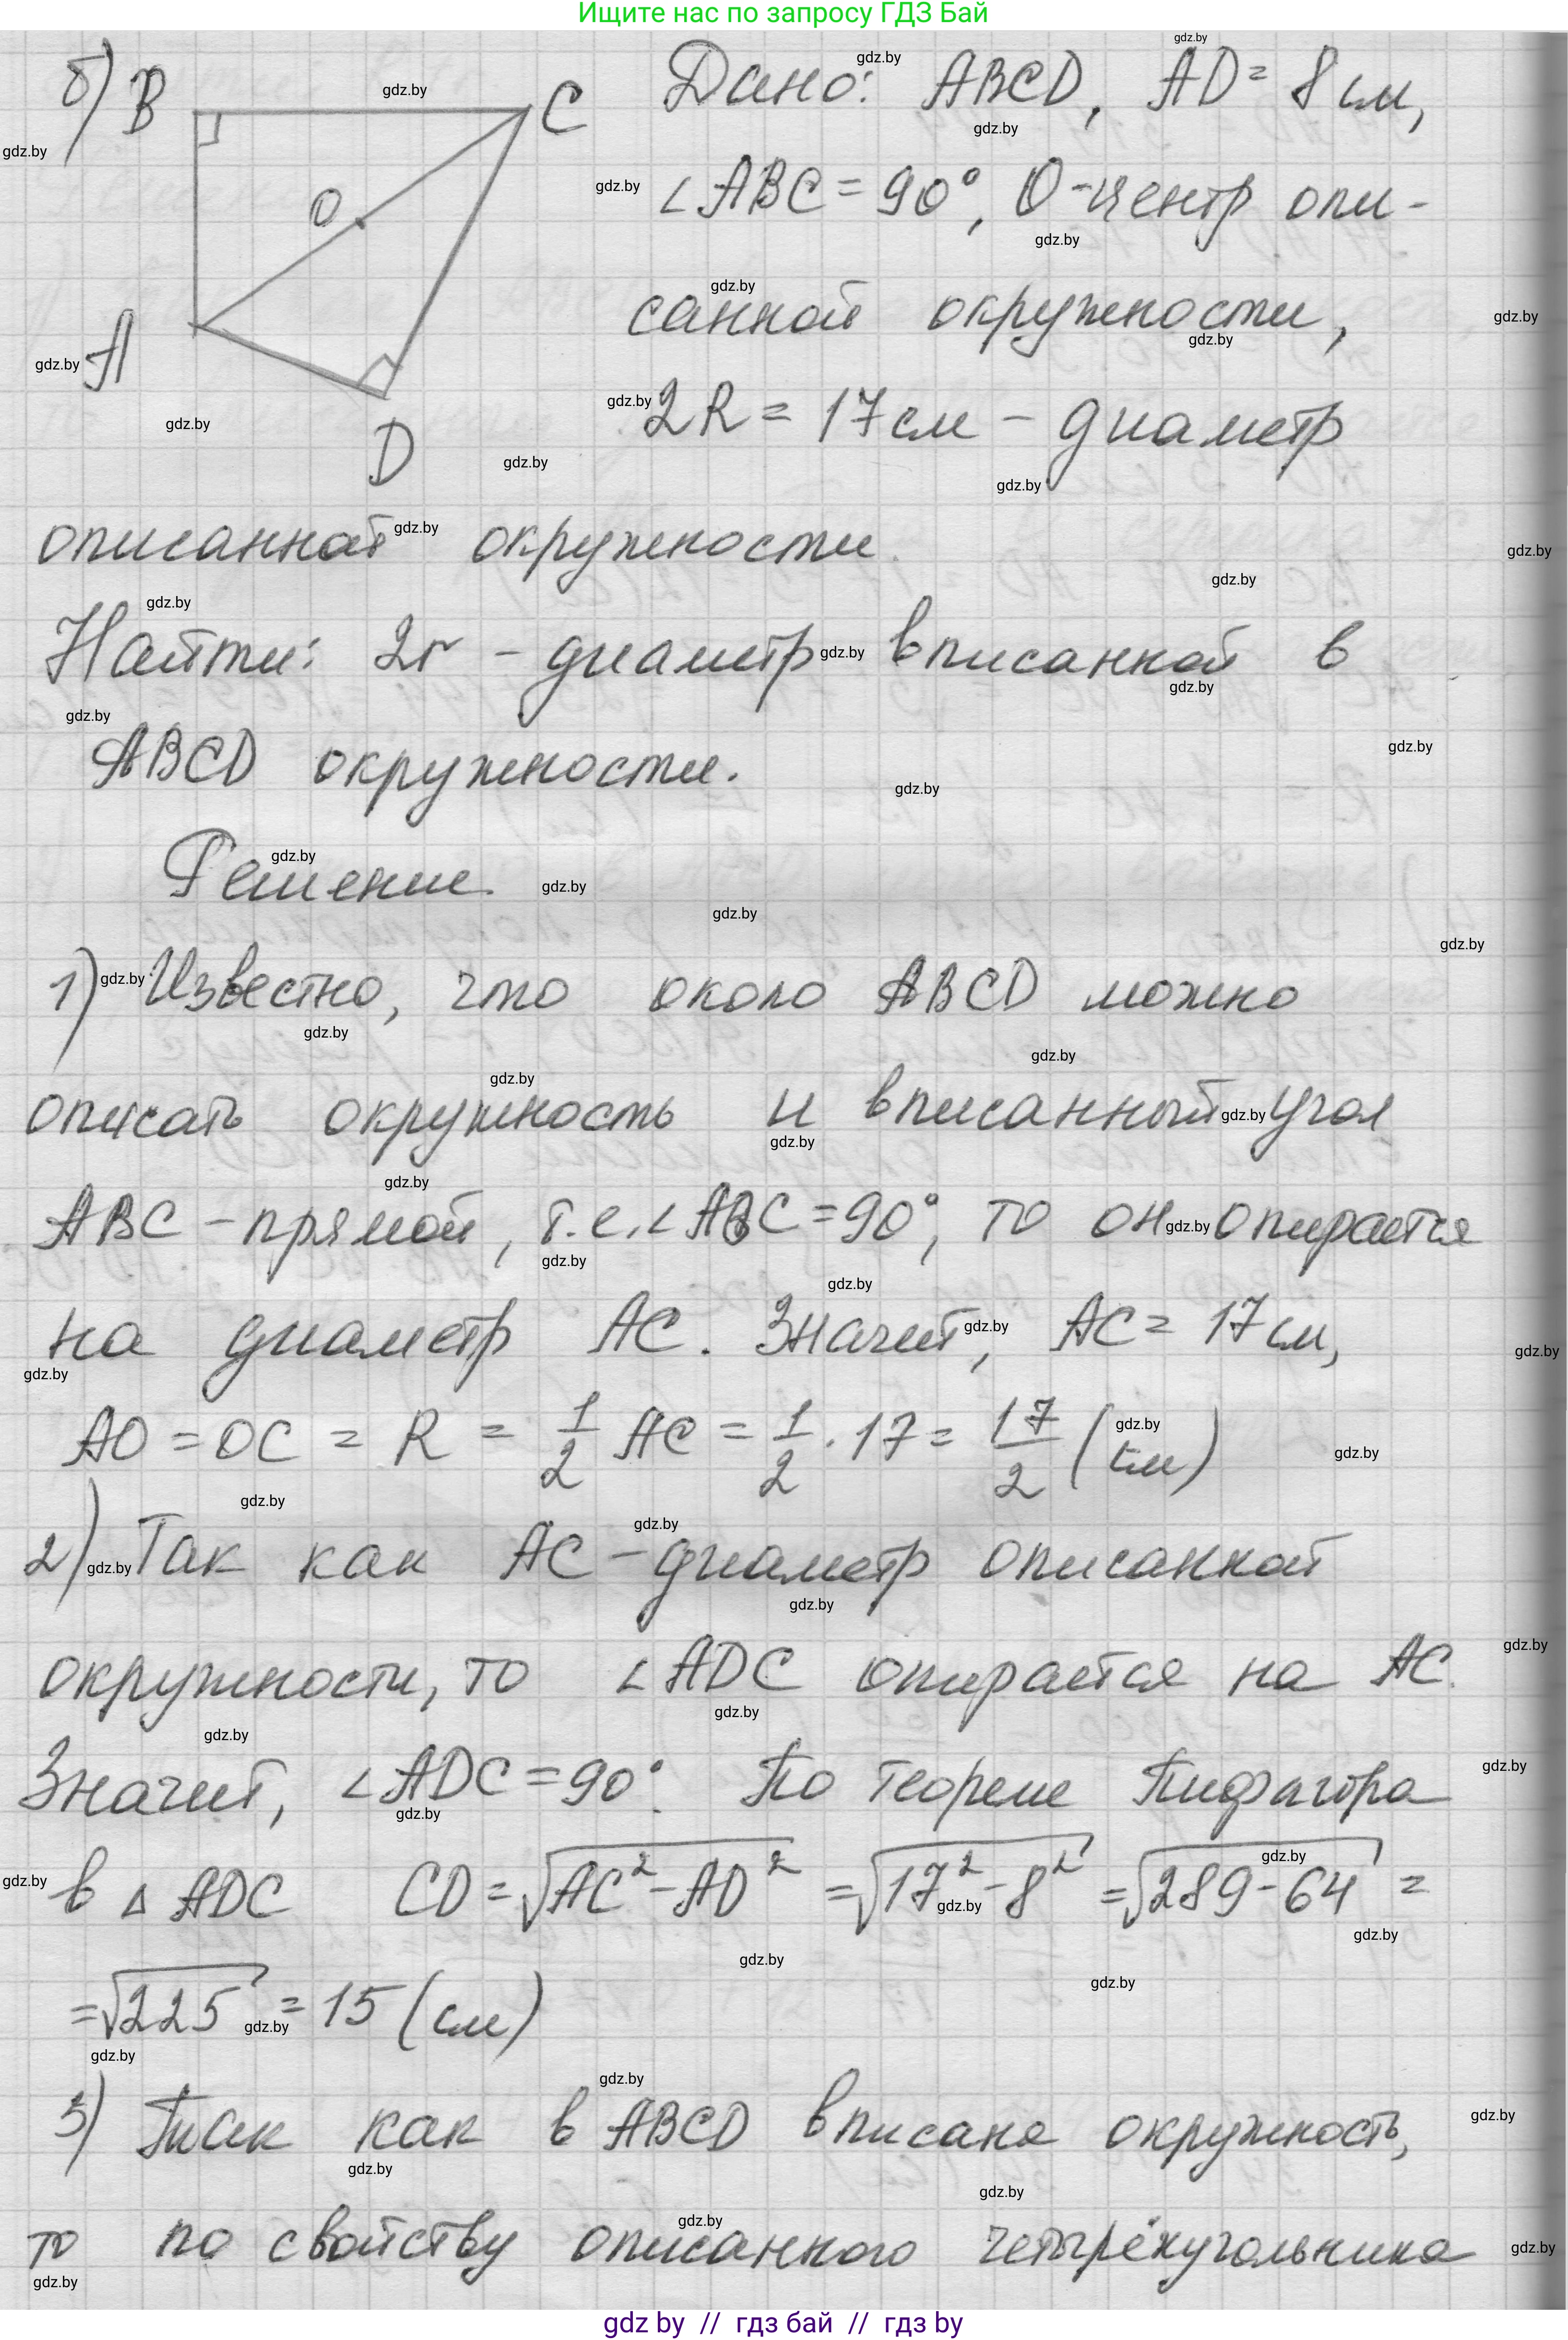 Ищите нас по запросу ГДЗ Бай
б) B C O A D
Дано: ABCD, AD = 8 см,
∠ABC = 90°, O - центр опи-
санной окружности,
2R = 17 см - диаметр
описанной окружности.
Найти: 2r - диаметр вписанной в
ABCD окружности.
Решение.
1) Известно, что около ABCD можно
описать окружность и вписанный угол
ABC - прямой, т.е. ∠ABC = 90°, то он опирается
на диаметр AC. Значит, AC = 17 см,
AO = OC = R = 1/2 AC = 1/2 · 17 = 17/2 (см)
2) Так как AC - диаметр описанной
окружности, то ∠ADC опирается на AC.
Значит, ∠ADC = 90°. По теореме Пифагора
в △ ADC CD = √(AC² - AD²) = √(17² - 8²) = √(289 - 64) =
= √225 = 15 (см)
3) Так как в ABCD вписана окружность,
то по свойству описанного четырёхугольника
gdz by // гдз бай // гдз by